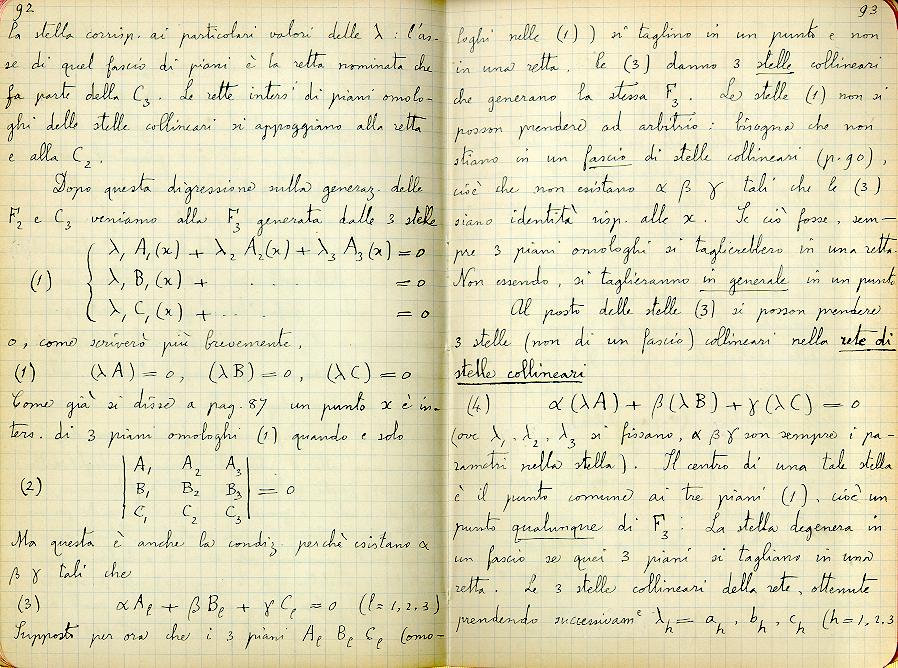 92
la stella corrisp. ai particolari valori delle λ : l'as-
se di quel fascio di piani è la retta nominata che
fa parte della C₃. Le rette inters.ⁱ di piani omolo-
ghi delle stelle collineari si appoggiano alla retta
e alla C₂.
Dopo questa digressione sulla generaz. delle
F₂ e C₃ veniamo alla F₃ generata dalle 3 stelle
(1) { λ₁ A₁(x) + λ₂ A₂(x) + λ₃ A₃(x) = 0
λ₁ B₁(x) + . . . . = 0
λ₁ C₁(x) + . . . . = 0
o, come scriverò più brevemente,
(1) (λA) = 0, (λB) = 0, (λC) = 0
Come già si disse a pag. 87 un punto x è in-
ters. di 3 piani omologhi (1) quando e solo
(2) | A₁ A₂ A₃ |
| B₁ B₂ B₃ | = 0
| C₁ C₂ C₃ |
Ma questa è anche la condiz. perchè esistano α
β γ tali che
(3) αAₗ + βBₗ + γCₗ = 0 (l = 1, 2, 3)
Supposto per ora che i 3 piani Aₗ Bₗ Cₗ (omo-
93
loghi nelle (1)) si taglino in un punto e non
in una retta. Le (3) danno 3 stelle collineari
che generano la stessa F₃. Le stelle (1) non si
posson prendere ad arbitrio : bisogna che non
stiano in un fascio di stelle collineari (p. 90),
cioè che non esistano α β γ tali che le (3)
siano identità risp. alle x. Se ciò fosse, sem-
pre 3 piani omologhi si taglierebbero in una retta.
Non essendo, si taglieranno in generale in un punto.
Al posto delle stelle (3) si posson prendere
3 stelle (non di un fascio) collineari nella rete di
stelle collineari
(4) α(λA) + β(λB) + γ(λC) = 0
(ove λ₁, λ₂, λ₃ si fissano, α β γ son sempre i pa-
rametri nella stella). Il centro di una tale stella
è il punto comune ai tre piani (1), cioè un
punto qualunque di F₃. La stella degenera in
un fascio se quei 3 piani si tagliano in una
retta. Le 3 stelle collineari della rete, ottenute
prendendo successivamᵉ λₕ = aₕ, bₕ, cₕ (h = 1, 2, 3